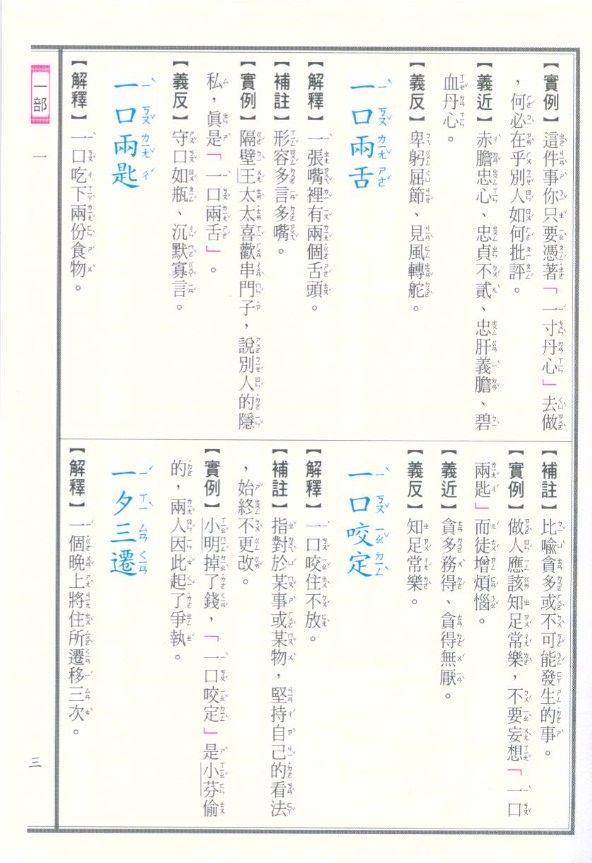 【實例】這件事你只要憑著「一寸丹心」去做
，何必在乎別人如何批評。
【義近】赤膽忠心、忠貞不貳、忠肝義膽、碧
血丹心。
【義反】卑躬屈節、見風轉舵。
一口兩舌
【解釋】一張嘴裡有兩個舌頭。
【補註】形容多言多嘴。
【實例】隔壁王太太喜歡串門子，說別人的隱
私，真是「一口兩舌」。
【義反】守口如瓶、沉默寡言。
一口兩匙
【解釋】一口吃下兩份食物。
【補註】比喻貪多或不可能發生的事。
【實例】做人應該知足常樂，不要妄想「一口
兩匙」而徒增煩惱。
【義近】貪多務得、貪得無厭。
【義反】知足常樂。
一口咬定
【解釋】一口咬住不放。
【補註】指對於某事或某物，堅持自己的看法
，始終不更改。
【實例】小明掉了錢，「一口咬定」是小芬偷
的，兩人因此起了爭執。
一夕三遷
【解釋】一個晚上將住所遷移三次。
一部
一
三